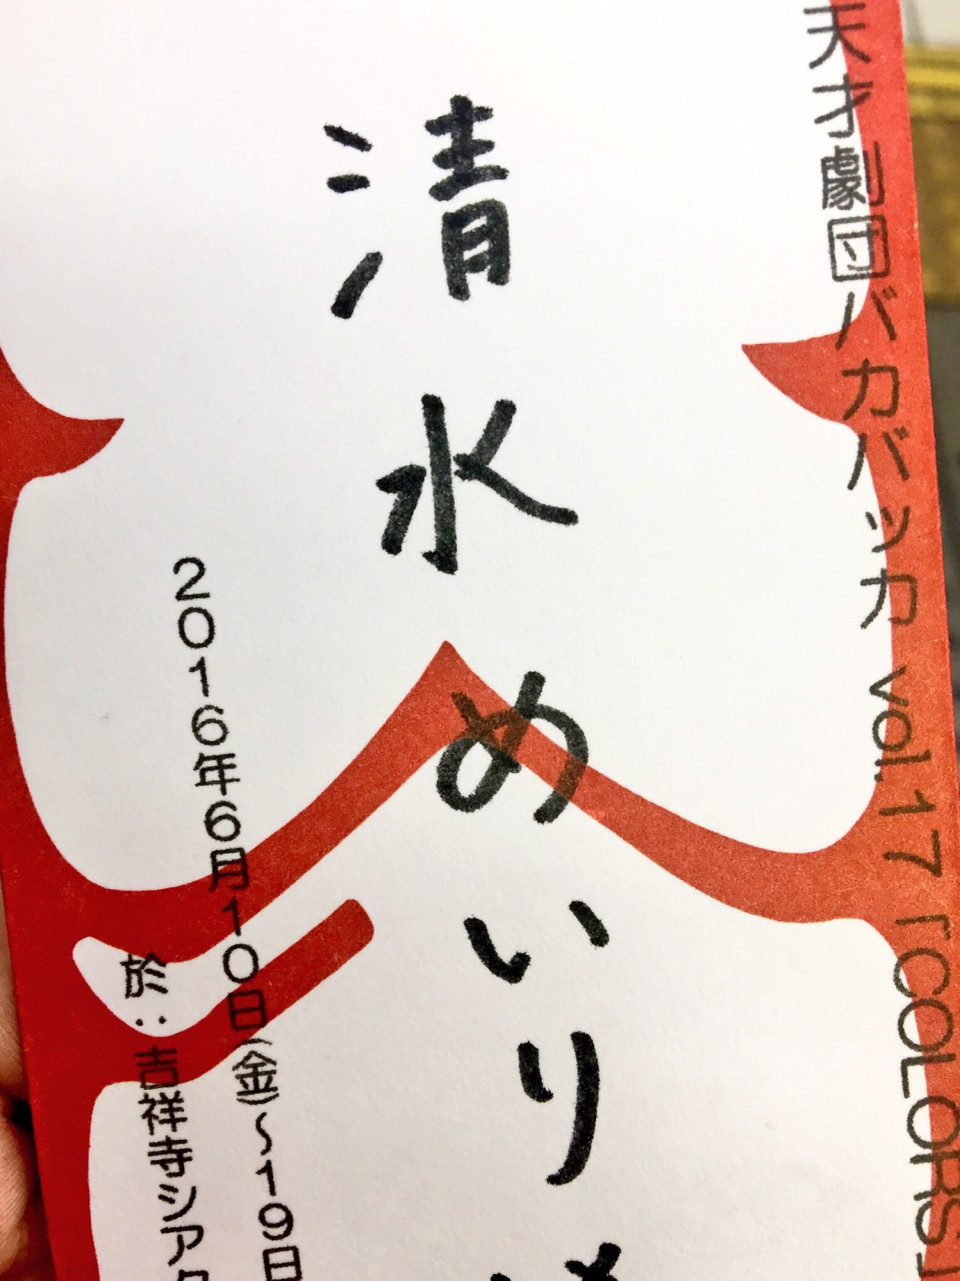 天才劇団バカバッカ vol.17「COLORS」
清水めいり
2016年6月10日(金)〜19日
於:吉祥寺シアタ